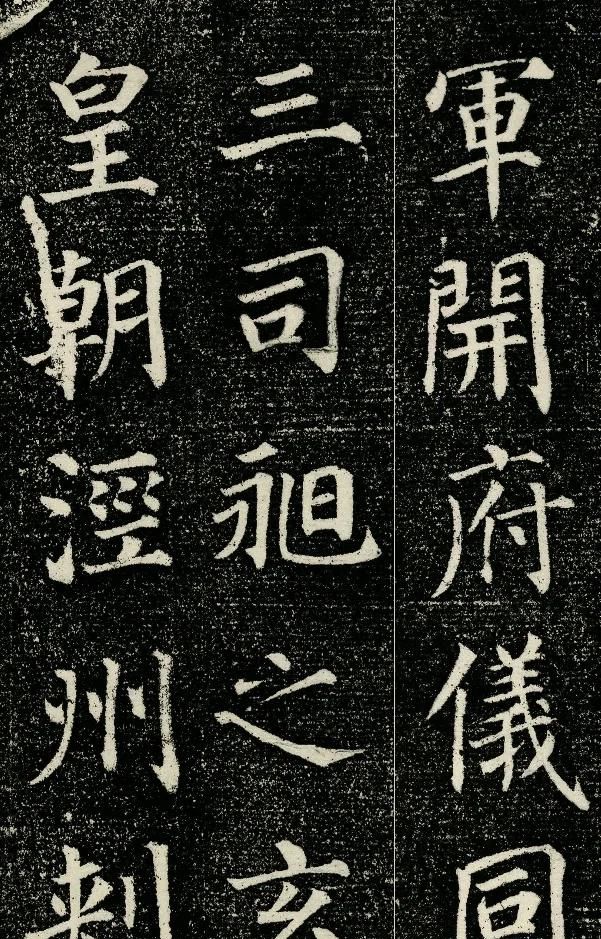 軍開府儀同
三司昶之玄
皇朝涇州刺